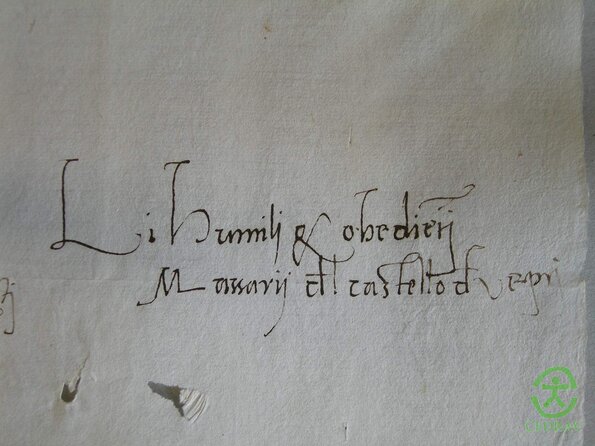 Li Humili & obediētj
Massarij dl castello d Vepri